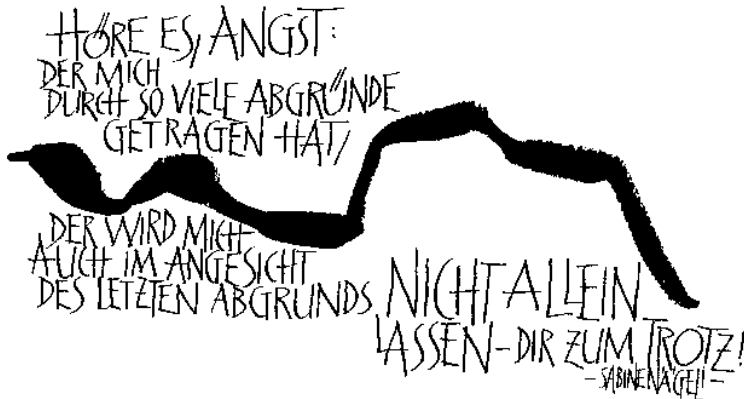 HÖRE ES, ANGST:
DER MICH
DURCH SO VIELE ABGRÜNDE
GETRAGEN HAT,
DER WIRD MICH
AUCH IM ANGESICHT
DES LETZTEN ABGRUNDS NICHT ALLEIN
LASSEN – DIR ZUM TROTZ!
– SABINE NAEGELI –